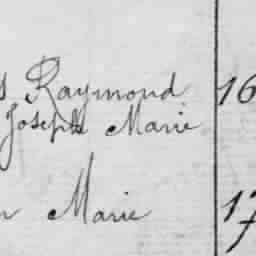 Raymond 16
Joseph Marie
Marie 17